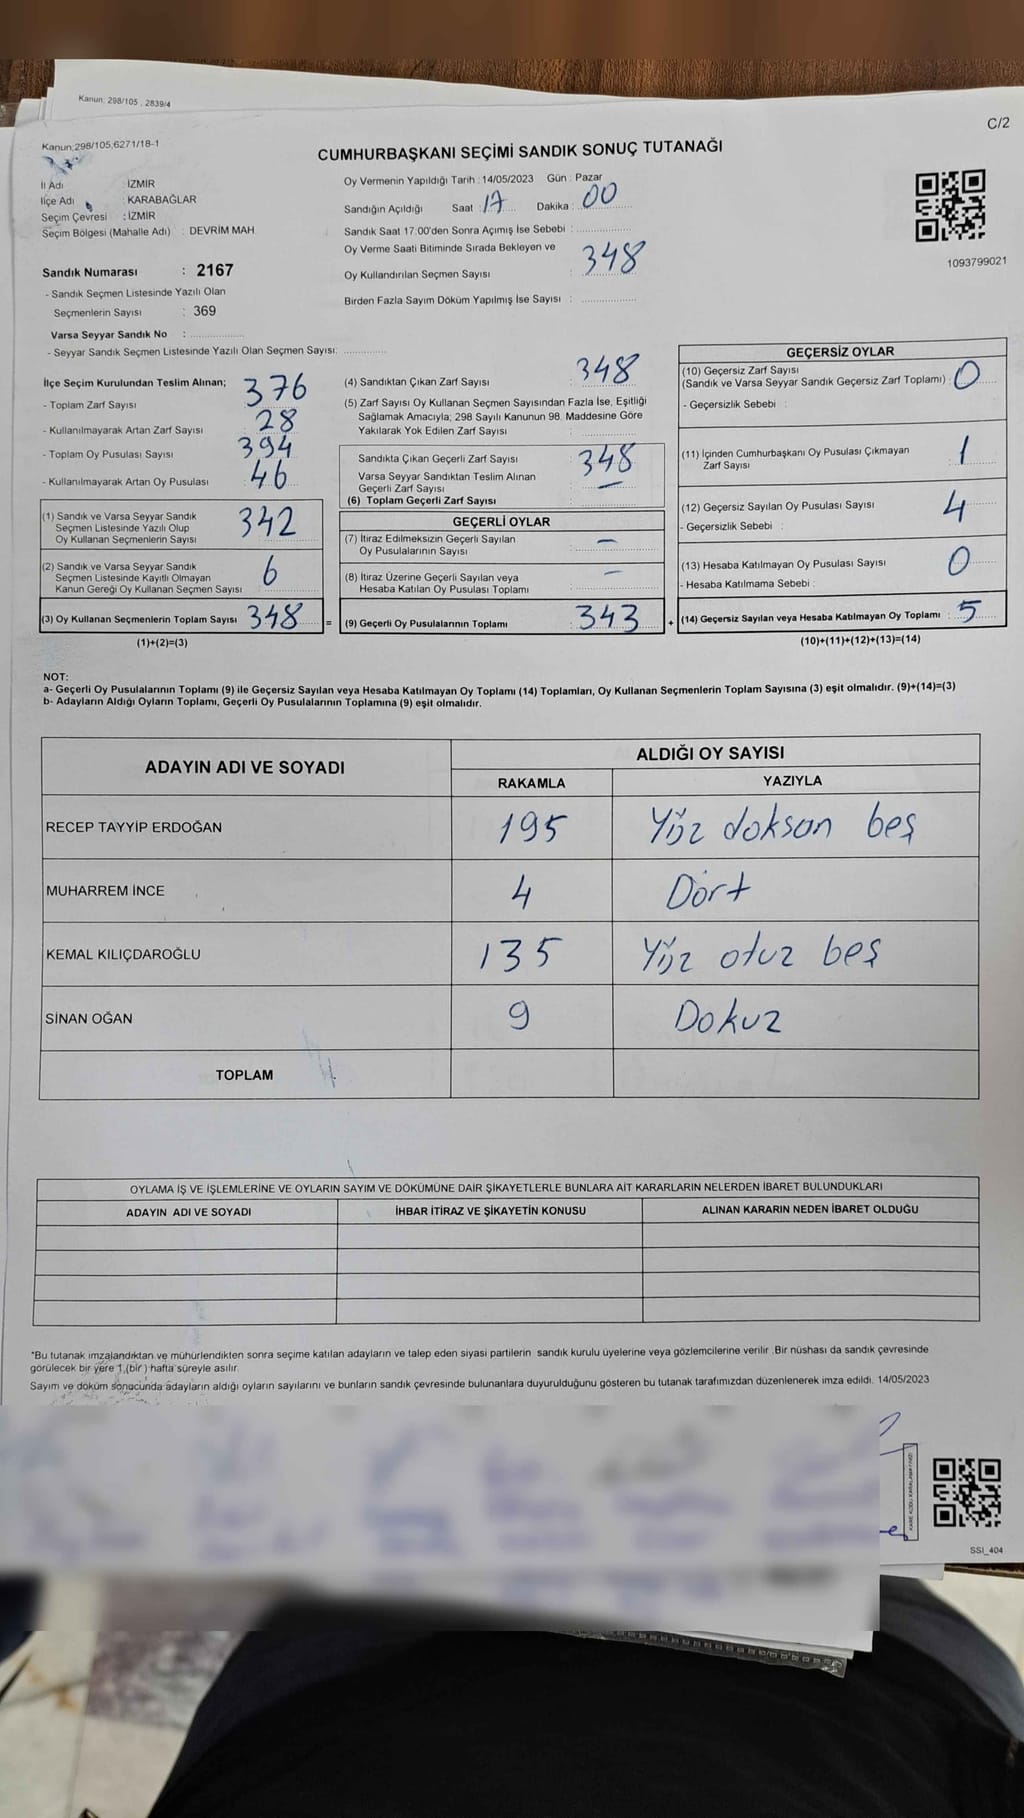 Kanun: 298/105 , 2839/4
C/2
Kanun:298/105,6271/18-1
CUMHURBAŞKANI SEÇİMİ SANDIK SONUÇ TUTANAĞI
İl Adı : İZMİR
İlçe Adı : KARABAĞLAR
Seçim Çevresi : İZMİR
Seçim Bölgesi (Mahalle Adı) : DEVRİM MAH
Oy Vermenin Yapıldığı Tarih : 14/05/2023 Gün : Pazar
Sandığın Açıldığı Saat : 17 Dakika : 00
Sandık Saat 17:00'den Sonra Açımış İse Sebebi :
Oy Verme Saati Bitiminde Sırada Bekleyen ve
Oy Kullandırılan Seçmen Sayısı : 348
Birden Fazla Sayım Döküm Yapılmış İse Sayısı :
1093799021
Sandık Numarası : 2167
- Sandık Seçmen Listesinde Yazılı Olan
Seçmenlerin Sayısı : 369
Varsa Seyyar Sandık No :
- Seyyar Sandık Seçmen Listesinde Yazılı Olan Seçmen Sayısı:
İlçe Seçim Kurulundan Teslim Alınan;
- Toplam Zarf Sayısı 376
- Kullanılmayarak Artan Zarf Sayısı 28
- Toplam Oy Pusulası Sayısı 394
- Kullanılmayarak Artan Oy Pusulası 46
(1) Sandık ve Varsa Seyyar Sandık
Seçmen Listesinde Yazılı Olup
Oy Kullanan Seçmenlerin Sayısı 342
(2) Sandık ve Varsa Seyyar Sandık
Seçmen Listesinde Kayıtlı Olmayan
Kanun Gereği Oy Kullanan Seçmen Sayısı 6
(3) Oy Kullanan Seçmenlerin Toplam Sayısı 348 =
(1)+(2)=(3)
(4) Sandıktan Çıkan Zarf Sayısı : 348
(5) Zarf Sayısı Oy Kullanan Seçmen Sayısından Fazla İse, Eşitliği
Sağlamak Amacıyla; 298 Sayılı Kanunun 98. Maddesine Göre
Yakılarak Yok Edilen Zarf Sayısı :
Sandıkta Çıkan Geçerli Zarf Sayısı : 348
Varsa Seyyar Sandıktan Teslim Alınan
Geçerli Zarf Sayısı : —
(6) Toplam Geçerli Zarf Sayısı
GEÇERLİ OYLAR
(7) İtiraz Edilmeksizin Geçerli Sayılan
Oy Pusulalarının Sayısı : —
(8) İtiraz Üzerine Geçerli Sayılan veya
Hesaba Katılan Oy Pusulası Toplamı : —
(9) Geçerli Oy Pusulalarının Toplamı 343 +
GEÇERSİZ OYLAR
(10) Geçersiz Zarf Sayısı
(Sandık ve Varsa Seyyar Sandık Geçersiz Zarf Toplamı) : 0
- Geçersizlik Sebebi :
(11) İçinden Cumhurbaşkanı Oy Pusulası Çıkmayan
Zarf Sayısı : 1
(12) Geçersiz Sayılan Oy Pusulası Sayısı : 4
- Geçersizlik Sebebi :
(13) Hesaba Katılmayan Oy Pusulası Sayısı : 0
- Hesaba Katılmama Sebebi :
(14) Geçersiz Sayılan veya Hesaba Katılmayan Oy Toplamı : 5
(10)+(11)+(12)+(13)=(14)
NOT:
a- Geçerli Oy Pusulalarının Toplamı (9) ile Geçersiz Sayılan veya Hesaba Katılmayan Oy Toplamı (14) Toplamları, Oy Kullanan Seçmenlerin Toplam Sayısına (3) eşit olmalıdır. (9)+(14)=(3)
b- Adayların Aldığı Oyların Toplamı, Geçerli Oy Pusulalarının Toplamına (9) eşit olmalıdır.
ADAYIN ADI VE SOYADI
ALDIĞI OY SAYISI
RAKAMLA YAZIYLA
RECEP TAYYİP ERDOĞAN 195 Yüz doksan beş
MUHARREM İNCE 4 Dört
KEMAL KILIÇDAROĞLU 135 Yüz otuz beş
SİNAN OĞAN 9 Dokuz
TOPLAM
OYLAMA İŞ VE İŞLEMLERİNE VE OYLARIN SAYIM VE DÖKÜMÜNE DAİR ŞİKAYETLERLE BUNLARA AİT KARARLARIN NELERDEN İBARET BULUNDUKLARI
ADAYIN ADI VE SOYADI İHBAR İTİRAZ VE ŞİKAYETİN KONUSU ALINAN KARARIN NEDEN İBARET OLDUĞU
*Bu tutanak imzalandıktan ve mühürlendikten sonra seçime katılan adayların ve talep eden siyasi partilerin sandık kurulu üyelerine veya gözlemcilerine verilir .Bir nüshası da sandık çevresinde
görülecek bir yere 1.(bir) hafta süreyle asılır.
Sayım ve döküm sonucunda adayların aldığı oyların sayılarını ve bunların sandık çevresinde bulunanlara duyurulduğunu gösteren bu tutanak tarafımızdan düzenlenerek imza edildi. 14/05/2023
SSI_404